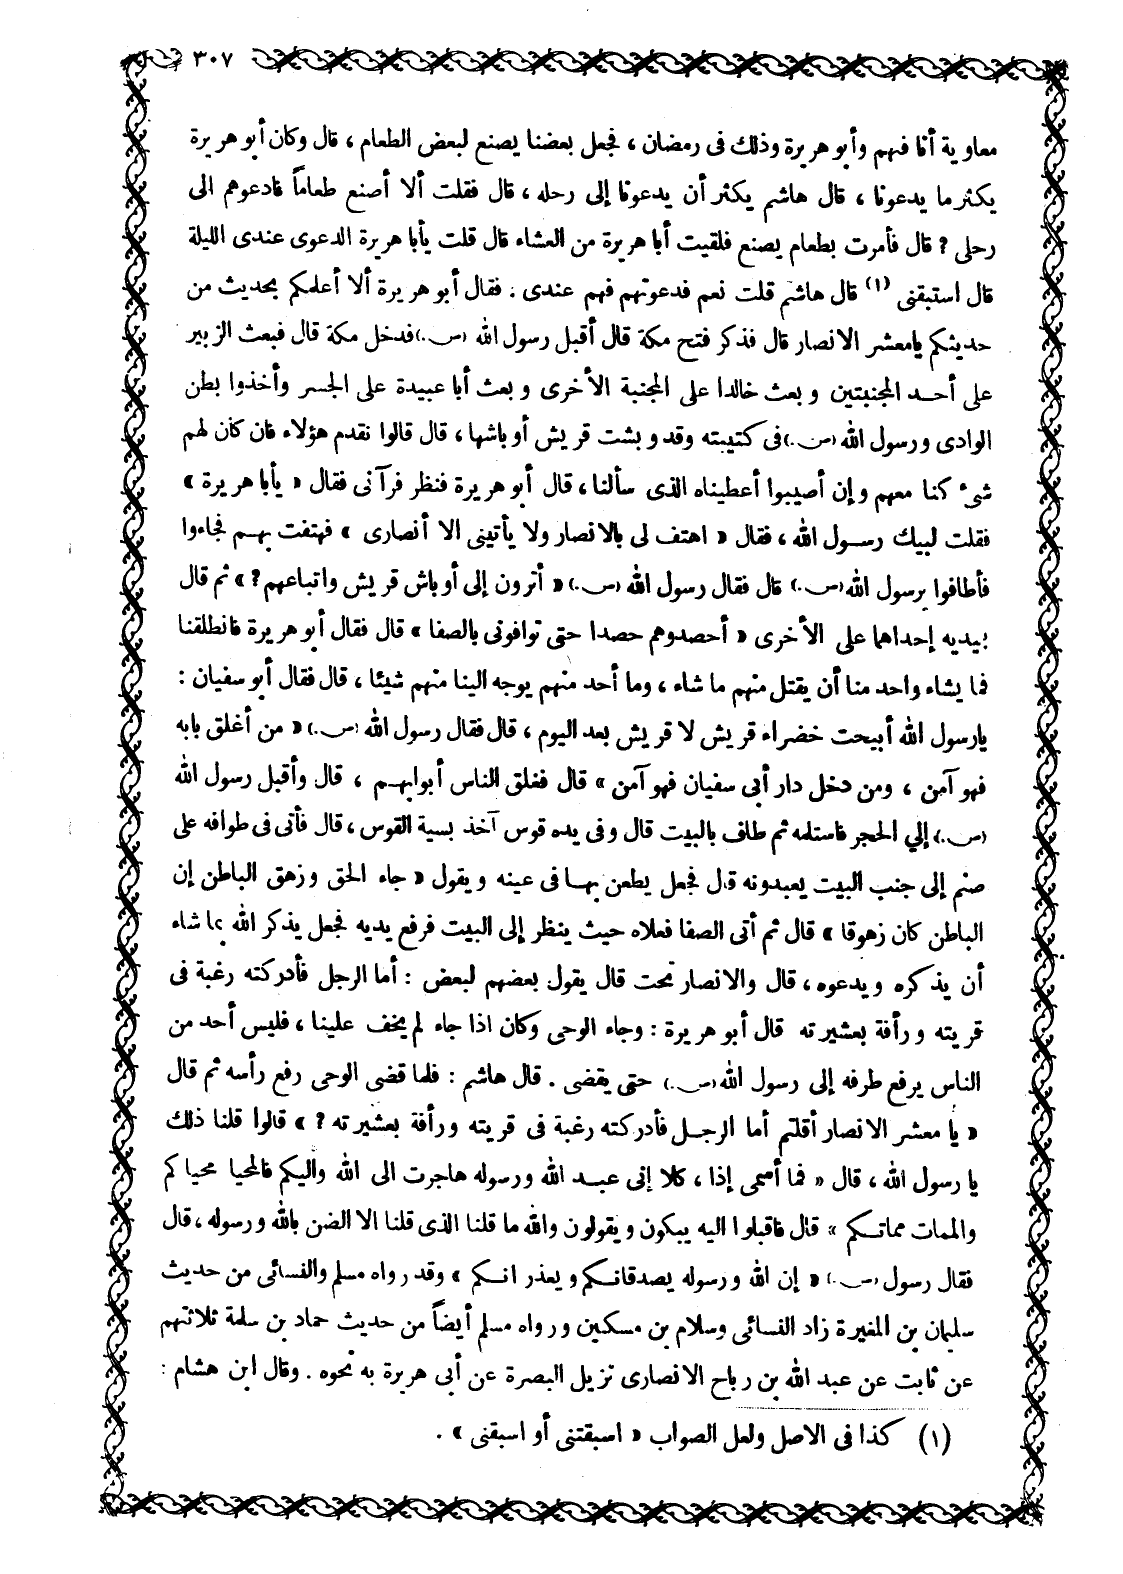 ٣٠٧
معاوية أنا فيهم وأبو هريرة وذلك فى رمضان ، فجعل بعضنا يصنع لبعض الطعام ، قال وكان أبو هريرة
يكثر ما يدعونا ، قال هاشم يكثر أن يدعونا إلى رحله ، قال فقلت ألا أصنع طعاماً فادعوهم الى
رحلى ? قال فأمرت بطعام يصنع فلقيت أبا هريرة من العشاء قال قلت يأبا هريرة الدعوى عندى الليلة
قال استبقنى (١) قال هاشم قلت نعم فدعوتهم فهم عندى . فقال أبو هريرة ألا أعلمكم بحديث من
حديثكم يامعشر الانصار قال فذكر فتح مكة قال أقبل رسول الله (ص.) فدخل مكة قال فبعث الزبير
على أحد المجنبتين وبعث خالدا على المجنبة الأخرى وبعث أبا عبيدة على الجسر وأخذوا بطن
الوادى ورسول الله (ص.) فى كتيبته وقد وبشت قريش أوباشها ، قال قالوا نقدم هؤلاء فان كان لهم
شىء كنا معهم وإن أصيبوا أعطيناه الذى سألنا ، قال أبو هريرة فنظر فرآنى فقال « يأبا هريرة »
فقلت لبيك رسول الله ، فقال « اهتف لى بالانصار ولا يأتينى الا أنصارى » فهتفت بهم فجاءوا
فأطافوا برسول الله (ص.) قال فقال رسول الله (ص.) « أترون إلى أوباش قريش واتباعهم ? » ثم قال
بيديه إحداهما على الأخرى « أحصدوهم حصدا حتى توافونى بالصفا » قال فقال أبو هريرة فانطلقنا
فما يشاء واحد منا أن يقتل منهم ما شاء ، وما أحد منهم يوجه الينا منهم شيئا ، قال فقال أبو سفيان :
يارسول الله أبيحت خضراء قريش لا قريش بعد اليوم ، قال فقال رسول الله (ص.) « من أغلق بابه
فهو آمن ، ومن دخل دار أبى سفيان فهو آمن » قال فغلق الناس أبوابهم ، قال وأقبل رسول الله
(ص.) إلي الحجر فاستلمه ثم طاف بالبيت قال وفى يده قوس آخذ بسية القوس ، قال فأتى فى طوافه على
صنم إلى جنب البيت يعبدونه قال فجعل يطعن بها فى عينه ويقول « جاء الحق وزهق الباطن إن
الباطن كان زهوقا » قال ثم أتى الصفا فعلاه حيث ينظر إلى البيت فرفع يديه فجعل يذكر الله بما شاء
أن يذكره ويدعوه ، قال والانصار تحت قال يقول بعضهم لبعض : أما الرجل فأدركته رغبة فى
قريته ورأفة بعشيرته قال أبو هريرة : وجاء الوحى وكان اذا جاء لم يخف علينا ، فليس أحد من
الناس يرفع طرفه إلى رسول الله (ص.) حتى يقضى . قال هاشم : فلما قضى الوحى رفع رأسه ثم قال
« يا معشر الانصار أقلتم أما الرجل فأدركته رغبة فى قريته ورأفة بعشيرته ? » قالوا قلنا ذلك
يا رسول الله ، قال « فما أسمى إذا ، كلا إنى عبد الله ورسوله هاجرت الى الله واليكم فالمحيا محياكم
والممات مماتكم » قال فاقبلوا اليه يبكون ويقولون والله ما قلنا الذى قلنا الا الضن بالله ورسوله ، قال
فقال رسول (ص.) « إن الله ورسوله يصدقانكم ويعذرانكم » وقد رواه مسلم والنسائى من حديث
سليمان بن المغيرة زاد النسائى وسلام بن مسكين ورواه مسلم أيضاً من حديث حماد بن سلمة ثلاثتهم
عن ثابت عن عبد الله بن رباح الانصارى نزيل البصرة عن أبى هريرة به نحوه . وقال ابن هشام :
(١) كذا فى الاصل ولعل الصواب « اسبقتنى أو اسبقنى » .